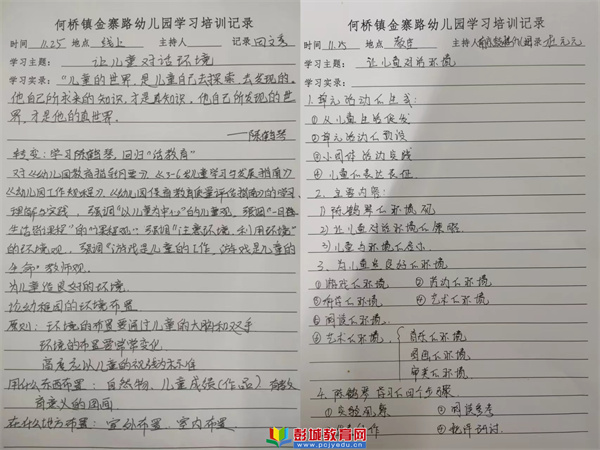 何桥镇金寨路幼儿园学习培训记录
时间 11.25 地点 线上 主持人 记录
学习主题： 让儿童对话环境
学习实录： “儿童的世界，是儿童自己去探索，去发现的。
他自己所求来的知识，才是真知识，他自己所发现的世
界，才是他的真世界。
——陈鹤琴
转变：学习陈鹤琴，回归“活教育”
对《幼儿园教育指导纲要》、《3-6岁儿童学习与发展指南》
《幼儿园工作规程》、《幼儿园保育教育质量评估指南》的学习、
理解与实践，强调“以儿童为中心”的儿童观，强调“一日
生活皆课程”的“课程观”，强调“注意环境，利用环境”
的环境观，强调“游戏是儿童的工作，游戏是儿童的
生命”教师观。
为儿童造良好的环境
幼稚园的环境布置
原则：环境的布置要通过儿童的大脑和双手
环境的布置要常常变化
高度应以儿童的视线为标准
用什么东西布置：自然物、儿童成绩（作品）
有意义的图画
在什么地方布置：室外布置、室内布置
何桥镇金寨路幼儿园学习培训记录
时间 11.25 地点 教室 主持人 记录
学习主题： 让儿童对话环境
学习实录：
1.单元活动
①从儿童生活出发
②单元活动
③小团体活动
④儿童
2.主要内容：
1)陈鹤琴环境观
2)让儿童对话环境
3)儿童与环境
3.为儿童良好环境
①游戏环境 ②劳动环境
③科学环境 ④艺术环境
⑤阅读环境
④艺术环境 音乐环境
图画环境
审美环境
4.陈鹤琴学习四个步骤
①实验观察 ②阅读参考
④批评研讨
彭城教育网
www.pcjyedu.cn